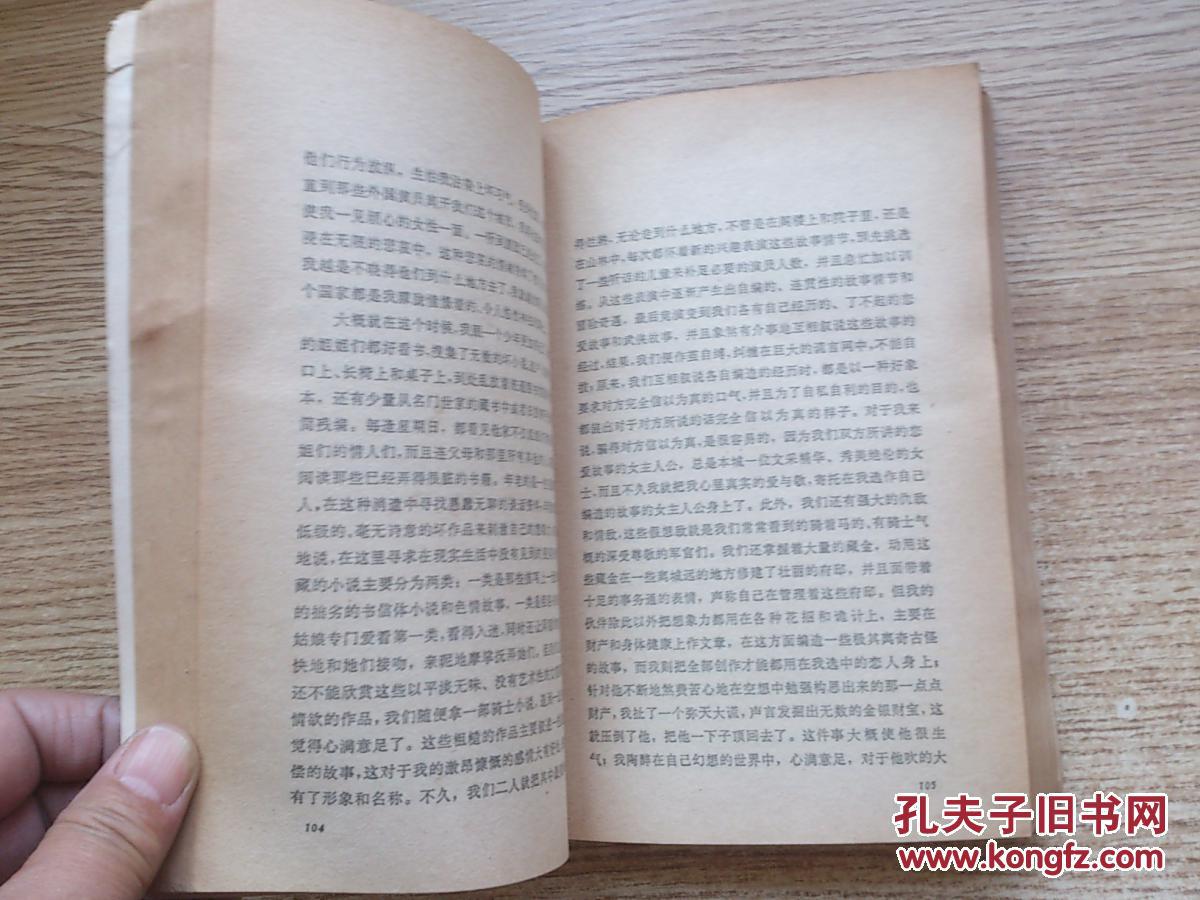 他们行为放
直到那些外国演员离开我们这个城市
使我一见倾心的女性一面。一听到
浸在无限的悲哀中。这种悲哀的情绪
我越是不晓得他们到什么地方去了,我
个国家都是我
大概就在这个时候,我跟一个少年
的姐姐们都好看书,搜集了无数的坏小说
口上、长椅上和桌子上,到处乱放着
本。还有少量从名门世家的藏书中
简残编。每逢星期日,都看见他家不仅
姐们的情人们,而且连父母和那里所有其他
阅读那些已经弄得很脏的书籍。年老的是一些
人,在这种消遣中寻找愚蠢无聊的谈话资料
低级的,毫无诗意的坏作品来刺激自己的想
地说,在这里寻求在现实生活中没有见到
藏的小说主要分为两类:一类是那些
的拙劣的书信体小说和色情故事,一类是
姑娘专门爱看第一类,看得入迷,同时还让
快地和她们接吻,亲昵地摩挲抚弄她们,
还不能欣赏这些以平淡无味、没有艺术性
情欲的作品,我们随便拿一部骑士小说,
觉得心满意足了。这些粗糙的作品主要叙述一些
偿的故事,这对于我的激昂慷慨的感情大有
有了形象和名称。不久,我们二人就把其中最
104
寻往熟,无论走到什么地方,不管是在阁楼上和院子里,还是
在山林中,每次都怀着新的兴趣表演这些故事情节,预先挑选
了一些听话的儿童来补足必要的演员人数,并且急忙加以训
练。从这些表演中逐渐产生出自编的、连贯性的故事情节和
冒险奇遇,最后竟演变到我们各有自己经历的、了不起的恋
爱故事和武侠故事,并且象煞有介事地互相叙说这些故事的
经过,结果,我们便作茧自缚,纠缠在巨大的谎言网中,不能自
拔;原来,我们互相叙说各自编造的经历时,都是以一种好象
要求对方完全信以为真的口气,并且为了自私自利的目的,也
都装出对于对方所说的话完全信以为真的样子。对于我来
说,骗得对方信以为真,是很容易的,因为我们双方所讲的恋
爱故事的女主人公,总是本城一位文采精华、秀美绝伦的女
士,而且不久我就把我心里真实的爱与敬,寄托在我选作自己
编造的故事的女主人公身上了。此外,我们还有强大的仇敌
和情敌,这些假想敌就是我们常常看到的骑着马的,有骑士气
概的深受尊敬的军官们。我们还掌握着大量的藏金,动用这
些藏金在一些离城远的地方修建了壮丽的府邸,并且面带着
十足的事务通的表情,声称自己在管理着这些府邸。但我的
伙伴除此以外把想象力都用在各种花招和诡计上,主要在
财产和身体健康上作文章,在这方面编造一些极其离奇古怪
的故事,而我则把全部创作才能都用在我选中的恋人身上;
针对他不断地煞费苦心地在空想中勉强构思出来的那一点点
财产,我扯了一个弥天大谎,声言发掘出无数的金银财宝,这
就压倒了他,把他一下子顶回去了。这件事大概使他很生
气;我陶醉在自己幻想的世界中,心满意足,对于他吹的大
105
孔夫子旧书网
www.kongfz.com